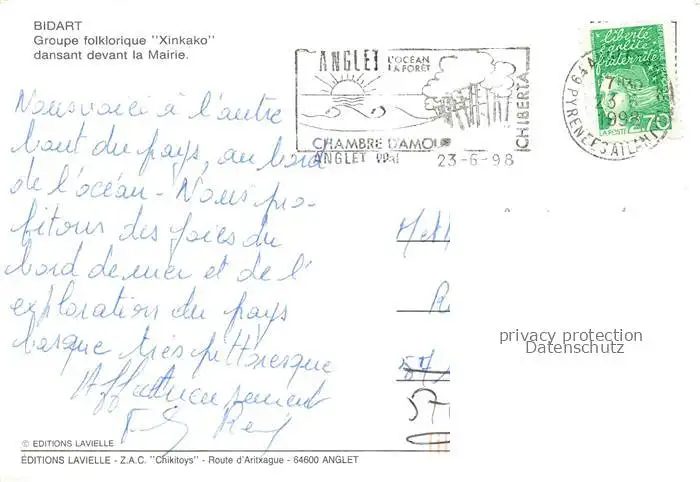 BIDART
Groupe folklorique "Xinkako"
dansant devant la Mairie.
ANGLET L'OCÉAN
LA FORÊT
CHIBERTA
CHAMBRE D'AMOUR
ANGLET
23-6-98
liberté
égalité
fraternité
23
1998
LA POSTE 2,70
PYRENEES ATLAN
Nous voici à l'autre
bout du pays, au bord
de l'océan - Nous pro-
fitons des joies du
bord de mer et de l'
exploration du pays
basque très pittoresque
Affectueusement
57
57
privacy protection
Datenschutz
© EDITIONS LAVIELLE
ÉDITIONS LAVIELLE - Z.A.C. "Chikitoys" - Route d'Aritxague - 64600 ANGLET